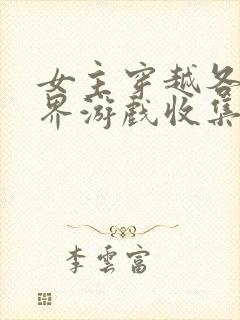 女主穿越各
界游戏收集
李雲富